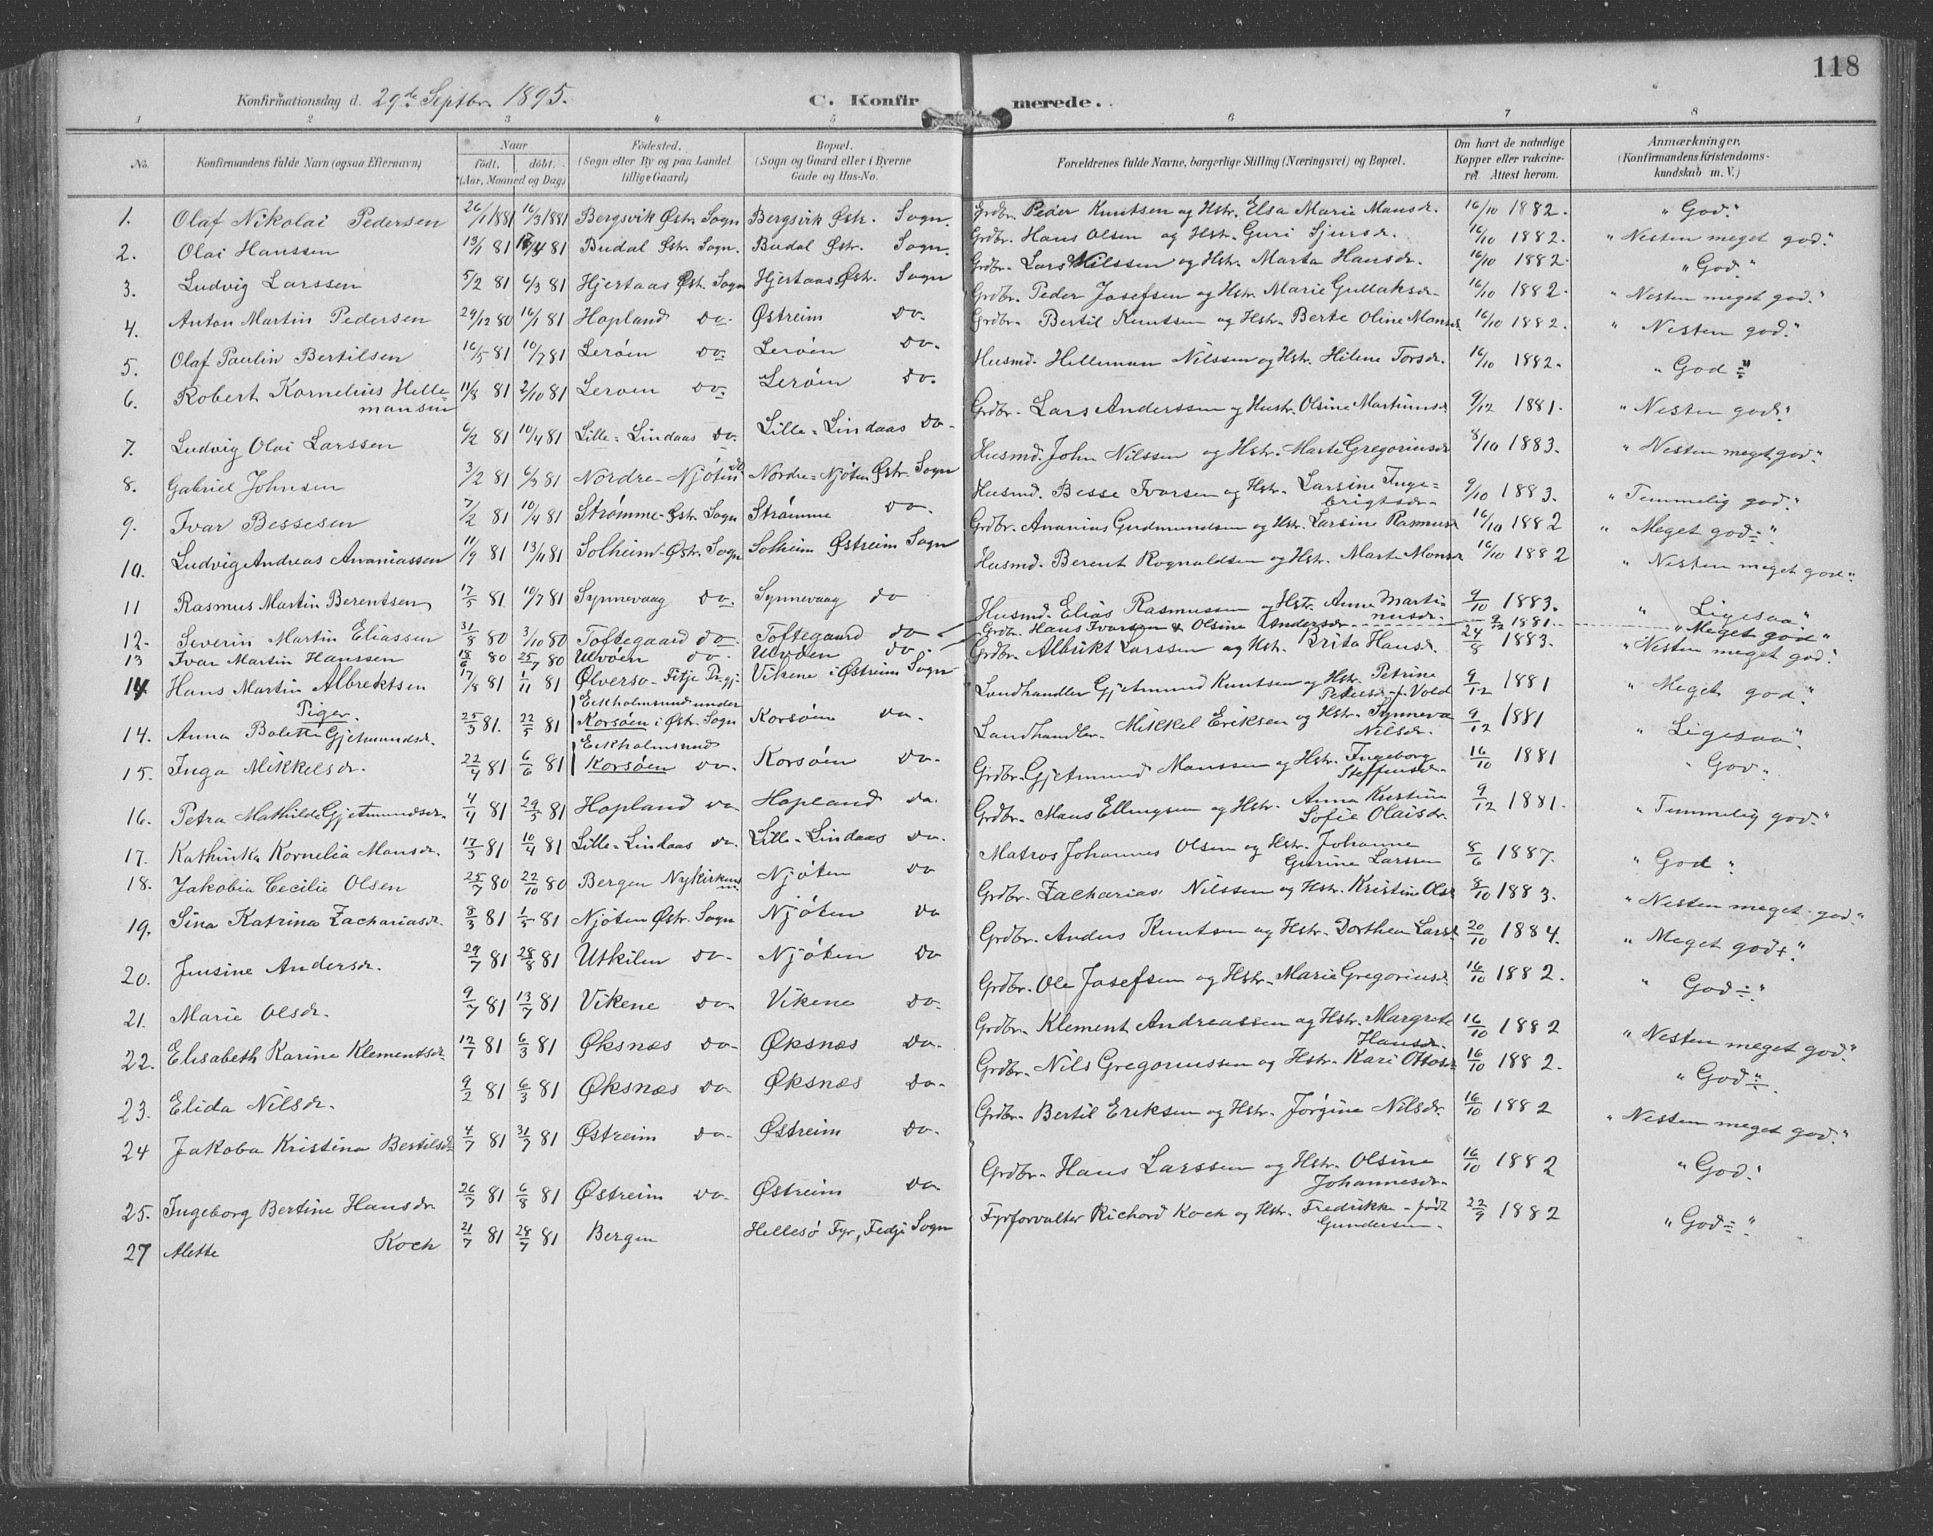 118
Konfirmationsdag d. 29de Septbr. 1895. C. Konfirmerede.
1 2 3 4 5 6 7 8
No. Konfirmandens fulde Navn (ogsaa Efternavn) Naar født. døbt. (Aar, Maaned og Dag) Fødested. (Sogn eller By og paa Landet tillige Gaard) Bopæl. (Sogn og Gaard eller i Byerne Gade og Hus-No. Forældrenes fulde Navne, borgerlige Stilling (Næringsvei) og Bopæl. Om havt de naturlige Kopper eller vakcineret. Attest herom. Anmærkninger. (Konfirmandens Kristendomskundskab m. V.)
1. Olaf Nikolai Pedersen 26/1 1881 16/3 1881 Bergsvik Østr. Sogn Bergsvik Østr. Sogn. Grdbr. Peder Knutsen og Hstr. Elsa Marie Mansdr. 16/10 1882. "God."
2. Olai Hanssen 13/1 81 18/4 81 Budal Østr. Sogn. Budal Østr. Sogn. Grdbr. Hans Olsen og Hstr. Guri Sjursdr. 16/10 1882. "Nesten meget god."
3. Ludvig Larssen 5/2 81 6/3 81 Hjertaas Østr. Sogn Hjertaas Østr. Sogn Grdbr. Lars Nilssen og Hstr. Marta Hansdr. 16/10 1882. "God."
4. Anton Martin Pedersen 29/12 80 16/1 81 Hopland do. Østreim do. Grdbr. Peder Josefsen og Hstr. Marie Gullaksdr. 16/10 1882. "Nesten meget god."
5. Olaf Paulin Bertilsen 16/5 81 10/7 81 Lerøen do. Lerøen do. Grdbr. Bertil Knutsen og Hstr. Berte Oline Monsdr 16/10 1882. "Nesten god."
6. Robert Kornelius Hillemansen 11/8 81 2/10 81 Lerøen do. Lerøen do. Husmd. Helleman Nilssen og Hstr. Hilene Torsdr. 16/10 1882. "God ÷"
7. Ludvig Olai Larssen 6/2 81 10/4 81 Lille-Lindaas do. Lille-Lindaas do. Grdbr. Lars Anderssen og Hustr. Olsine Martinusdr 9/12 1881. "Nesten god."
8. Gabriel Johnsen 3/2 81 6/3 81 Nordre-Njøten do. Nordre-Njøten Østr. Sogn Husmd. John Nilssen og Hstr. Marte Gregoriusdr 8/10 1883. "Nesten meget god."
9. Ivar Bessesen 7/2 81 10/4 81 Strømme Østr. Sogn Strømme do. Husmd. Besse Ivarsen og Hstr. Larsine Ingebrigtsdr. 9/10 1883. "Temmelig god."
10. Ludvig Andreas Ananiassen 11/9 81 13/11 81 Solheim-Østr. Sogn Solheim Østreim Sogn Grdbr. Ananias Gudmundsen og Hstr. Larsine Rasmusd 16/10 1882 "Meget god÷"
11 Rasmus Martin Berentsen 17/5 81 10/7 81 Synnevaag do. Synnevaag do Husmd. Berent Rognaldsen og Hstr. Marte Monsdr 16/10 1882 "Nesten meget god."
12. Severin Martin Eliassen 31/8 80 3/10 80 Toftegaard do Toftegaard do Husmd. Elias Rasmussen og Hstr. Anne Martinusdr. 9/10 1883. "Ligesaa."
13 Ivar Martin Hanssen 18/6 80 25/7 80 Ulvøen do. Ulvøen do. Grdbr. Hans Ivarsen & Olsine Andersdr. 9/12 1881. "Meget god"
14 Hans Martin Albrektsen 17/8 81 1/11 81 Ølversø-Fitje Prgj. Vikene i Østreim Sogn Grdbr. Albrikt Larssen og Hstr. Brita Hansdr. 24/8 1883. "Nesten meget god."
Piger.
14. Anna Bolette Gjetmundsdr. 25/3 81. 22/5 81 Eckholmsund under Korsøen i Østr. Sogn Korsøen do. Landhandler Gjetmund Knutsen og Hstr. Petrine Petersdr f. Vold 9/12 1881 "Meget god."
15. Inga Mikkelsdr. 22/4 81 6/6 81 Eckholmsund Korsøen do. Korsøen do. Landhandler Mikkel Eriksen og Hstr. Synneva Nilsdr. 9/12 1881 "Ligesaa."
16. Petra Mathilde Gjetmundsdr. 4/4 81 29/5 81 Hopland do Hopland do. Grdbr. Gjetmund Manssen og Hstr. Ingeborg Steffensdr. 16/10 1881 "God."
17. Kathinka Kornelia Mansdr. 17/3 81 10/4 81 Lille-Lindaas do. Lille-Lindaas do. Grdbr. Mans Ellingsen og Hstr. Anna Kristine Sofie Olaisdr. 9/12 1881. "Temmelig god."
18. Jakobia Cecilie Olsen 25/7 80 22/10 80 Bergen Nykirken Njøten do Matros Johannes Olsen og Hstr. Johanne Gurine Larssen 8/6 1887. "God"
19. Sina Katrina Zachariasdr. 8/3 81 1/5 81 Njøten Østr. Sogn Njøten do Grdbr. Zacharias Nilssen og Hstr. Kristine Olsdr 8/10 1883. "Nesten meget god"
20. Jensine Andersdr. 29/7 81 28/8 81 Utkilen do. Njøten do Grdbr. Anders Knutsen og Hstr. Dorthea Larsd 20/10 1884. "Meget god+."
21. Marie Olsdr. 9/7 81 13/7 81 Vikene do. Vikene do. Grdbr. Ole Josefsen og Hstr. Marie Gregoriusdr. 16/10 1882. "God÷."
22. Elisabeth Karine Klementsdr. 12/7 81 6/3 81 Øksnæs do. Øksnæs do. Grdbr. Klement Andreassen og Hstr. Margrete Hansdr. 16/10 1882 "Nesten meget god."
23. Elida Nilsdr. 9/2 81 6/3 81 Øksnæs do. Øksnæs do. Grdbr. Nils Gregoriussen og Hstr. Kari Ottosdr 16/10 1882. "God÷"
24 Jakoba Kristina Bertilsdr 4/7 81 31/7 81 Østreim do. Østreim do. Grdbr. Bertil Eriksen og Hstr. Jørgine Nilsdr. 16/10 1882 "Nesten meget god."
25. Ingeborg Bertine Hansdr. 26/7 81 6/8 81 Østreim do. Østreim do. Grdbr. Hans Larssen og Hstr. Olsine Johannesdr. 16/10 1882 "God."
27 Alette Koch 21/7 81 28/7 81 Bergen Hellesø Fyr, Fedje Sogn Fyrforvalter Richard Koch og Hstr. Fredrikke - født Gundersen. 22/9 1882 "God÷"